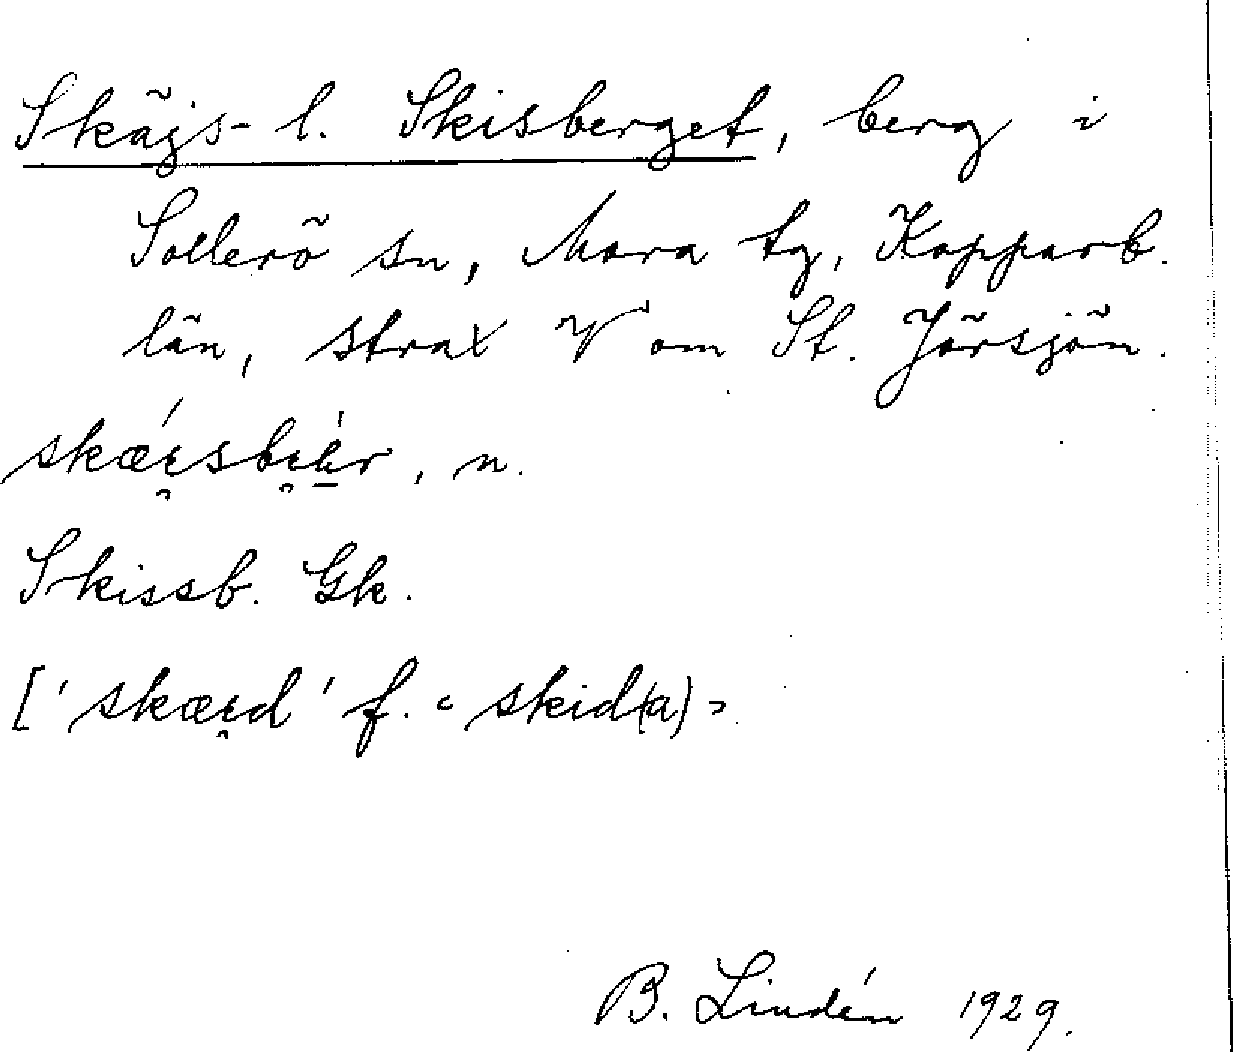 Skäjs- l. Skisberget, berg i
Sollerö sn, Mora tg, Kopparb.
län, strax V om St. Jörsjön.
skǽi̯sbi̯ä̀r, n.
Skissb. Gk.
['skæi̯d' f. "skid(a)".
B. Lindén 1929.